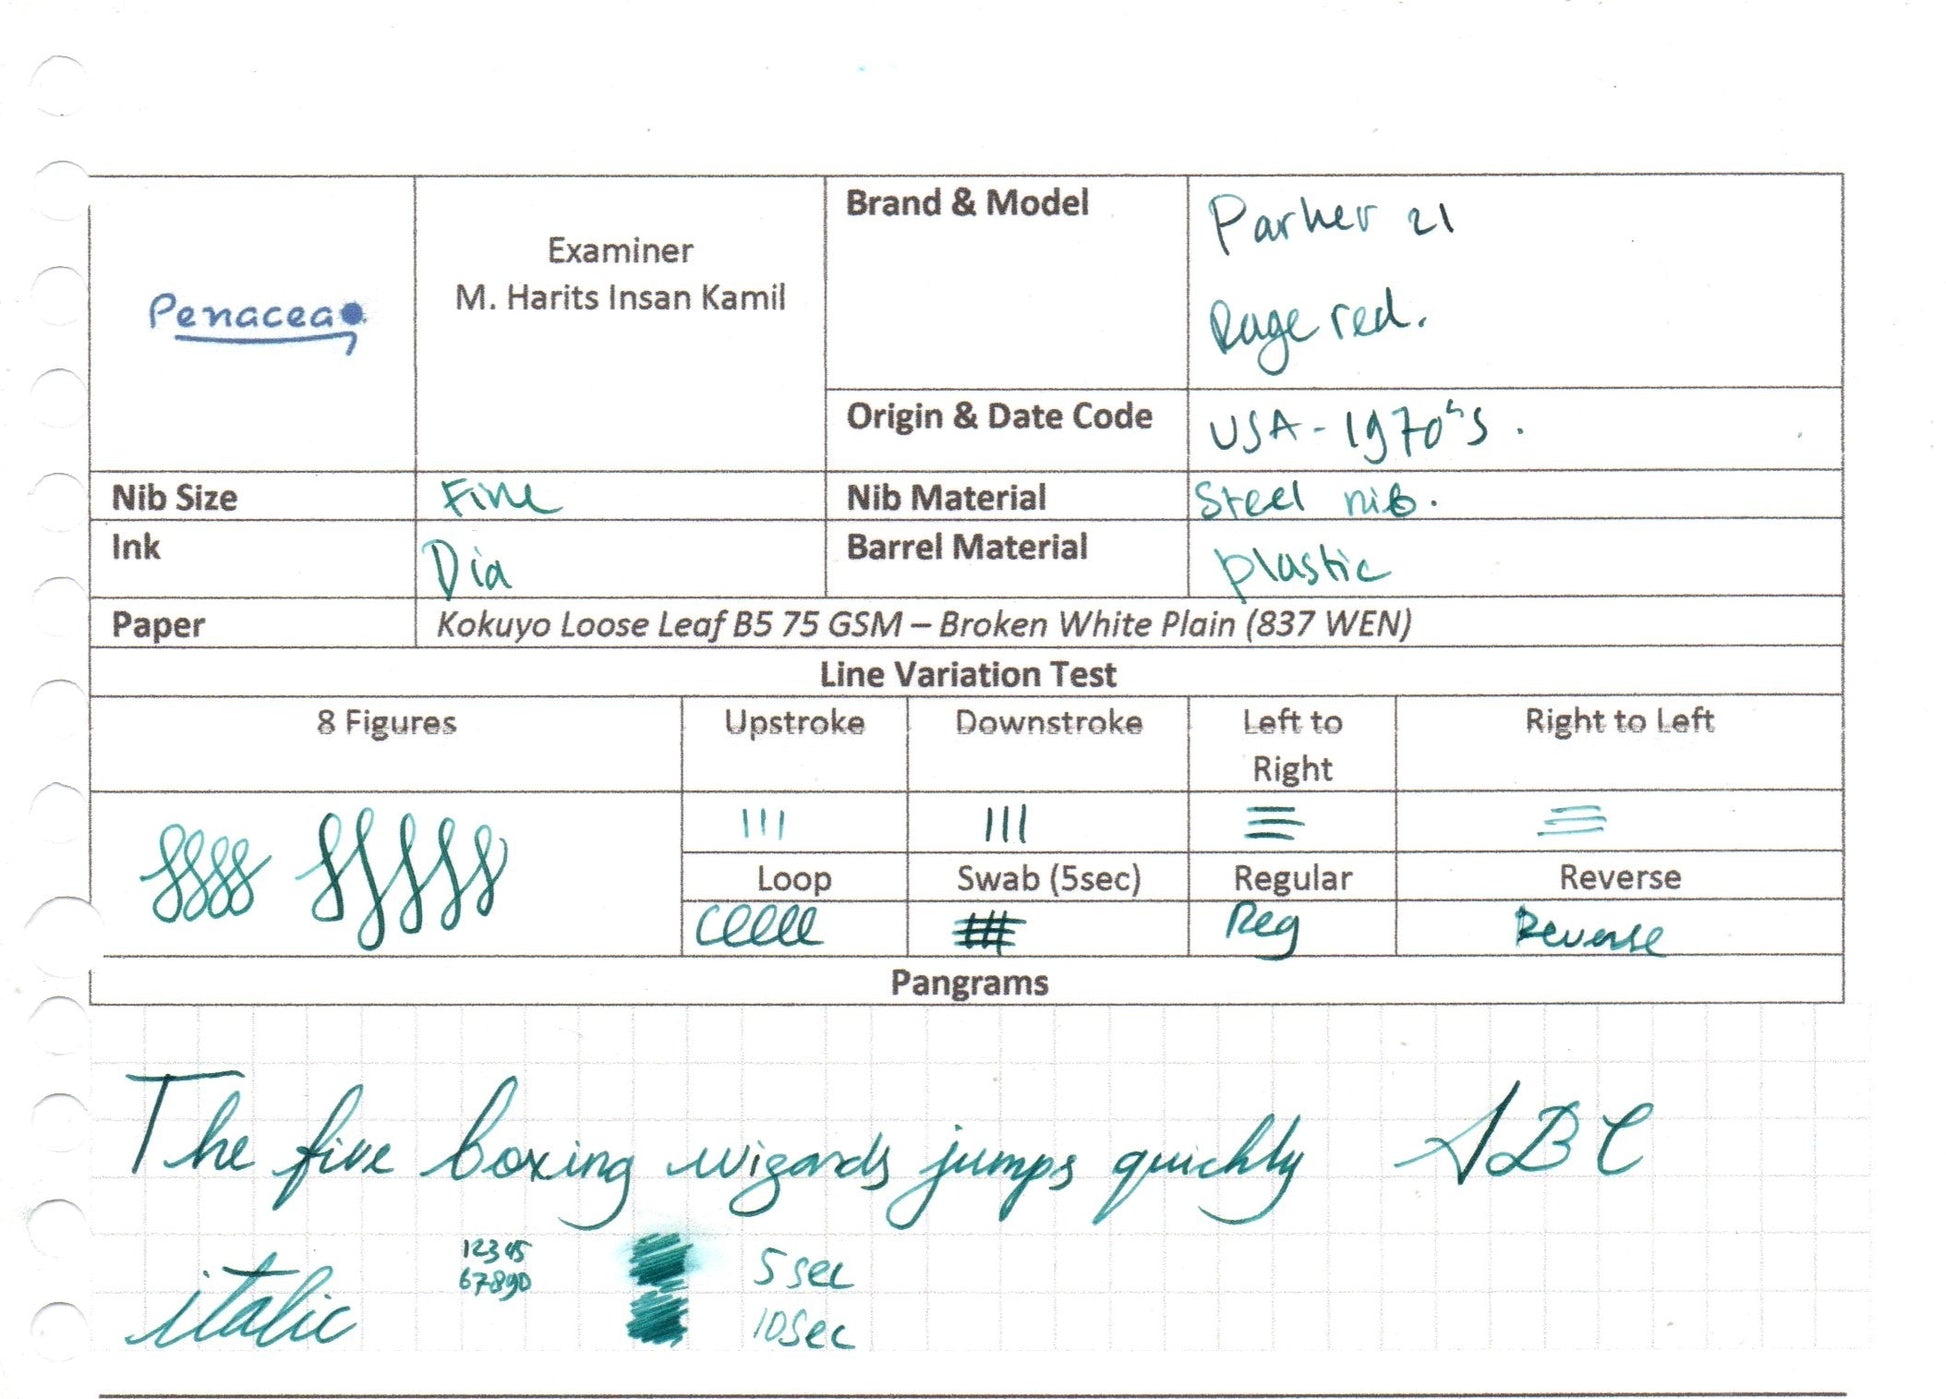 Penacea
Examiner
M. Harits Insan Kamil
Brand & Model
Parker 21
Rage red.
Origin & Date Code
USA - 1970's.
Nib Size
Fine
Nib Material
Steel nib.
Ink
Dia
Barrel Material
plastic
Paper
Kokuyo Loose Leaf B5 75 GSM – Broken White Plain (837 WEN)
Line Variation Test
8 Figures
Upstroke
Downstroke
Left to
Right
Right to Left
Loop
Swab (5sec)
Regular
Reverse
Reg
Reverse
Pangrams
The five boxing wizards jumps quickly ABC
italic
12345
67890
5 sec
10 sec